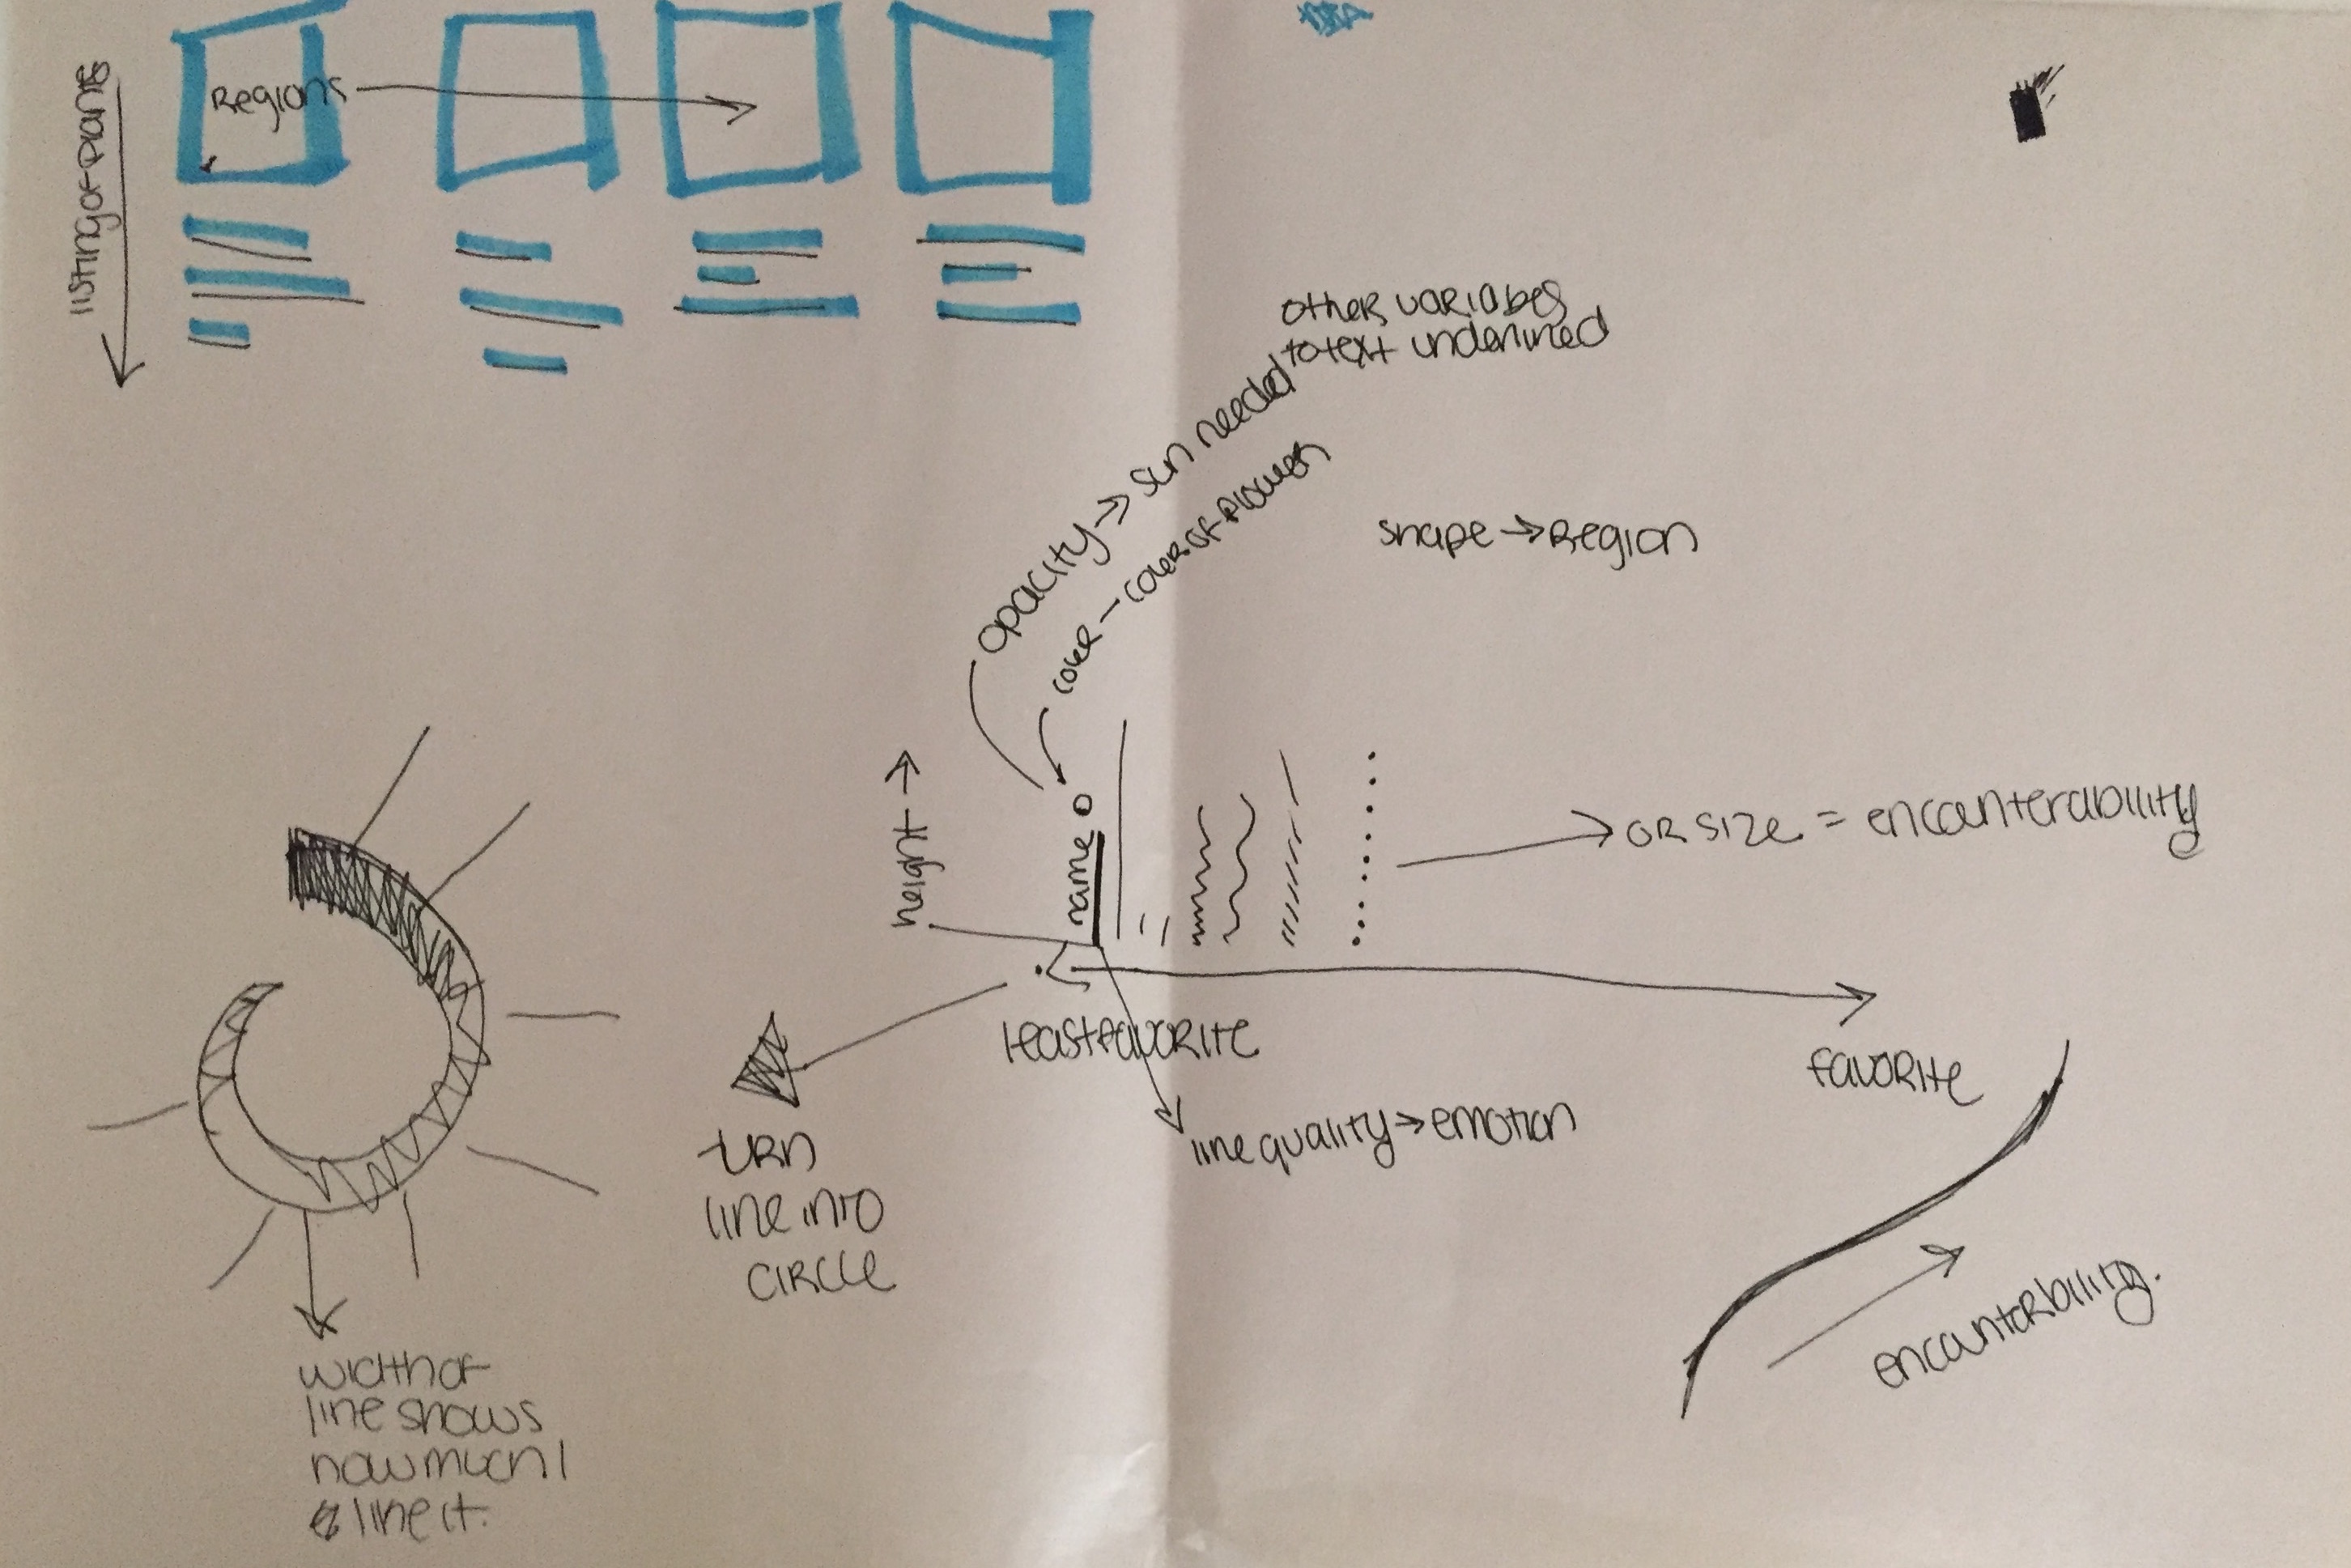 Regions
listing of plants
other variables
to text underlined
opacity → sun needed
color – color of flower
shape → Region
height →
name
→ OR size = encounterability
least favorite
favorite
line quality → emotion
turn
line into
circle
encounterbility.
width of
line shows
how much I
line it.